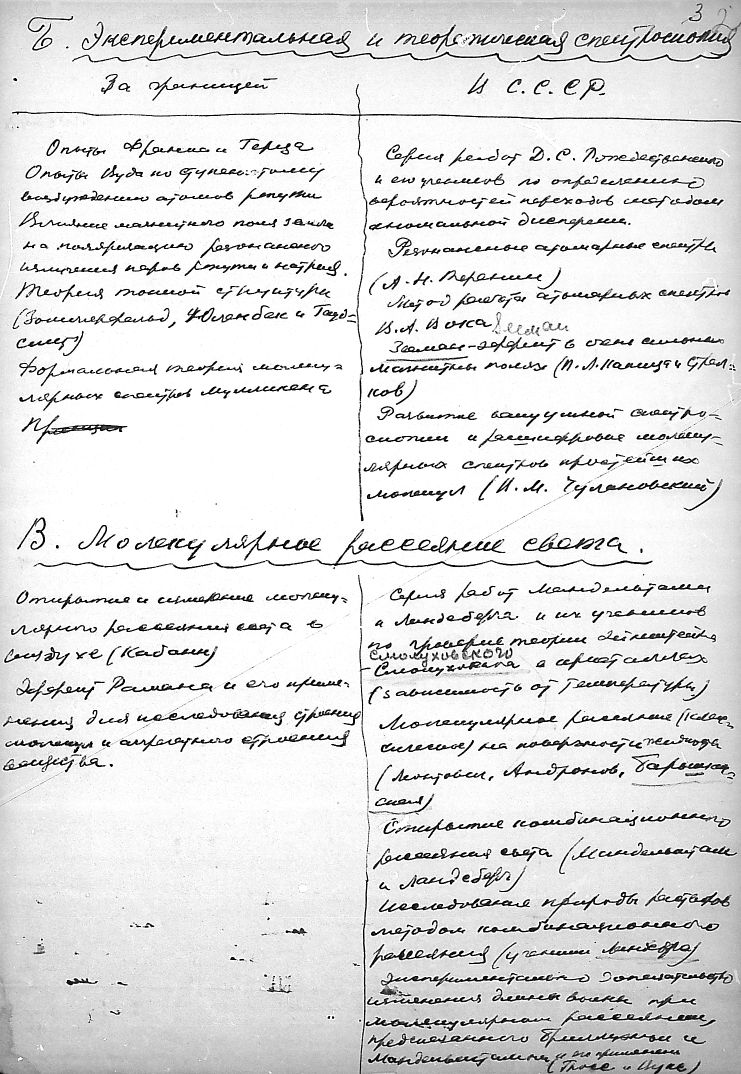 3
Б. Экспериментальная и теоретическая спектроскопия
За границей
В С.С.С.Р.
Опыты Франка и Герца
Опыты Вуда по ступенчатому
возбуждению атомов ртути
Влияние магнитного поля земли
на поляризацию резонансного
излучения паров ртути и натрия.
Теория тонкой структуры
(Зоммерфельд, Юленбек и Гауд-
смит)
Формальная теория молеку-
лярных спектров Мулликена
Серия работ Д.С. Рождественского
и его учеников по определению
вероятностей переходов методом
аномальной дисперсии.
Резонансные атомарные спектры
(А.Н. Теренин)
Метод работа атомарных спектров
В.А. Фока
Зееман
Зееман-эффект в очень сильных
магнитных полях (П.Л. Капица и Стрел-
ков)
Развитие вакуумной спектро-
скопии и расшифровке молеку-
лярных спектров простейших
молекул (В.М. Чулановский)
В. Молекулярное рассеяние света.
Открытие и измерение молеку-
лярного рассеяния света в
воздухе (Кабанн)
Эффект Рамана и его приме-
нения для исследования строения
молекул и агрегатного строения
вещества.
Серия работ Мандельштама
и Ландсберга и их учеников
по проверке теории Эйнштейна
Смолуховского
Смолуховского в кристаллах
(зависимость от температуры)
Молекулярное рассеяние (клас-
сическое) на поверхности жидкости
(Леонтович, Андронов, Барышан-
ская)
Открытие комбинационного
рассеяния света (Мандельштам
и Ландсберг)
Исследование природы растворов
методом комбинационного
рассеяния (ученики Ландсберга)
Экспериментальное доказательство
изменения длины волны при
молекулярном рассеянии,
предсказанного Бриллюэном и
Мандельштамом и их применении
(Гросс и Вукс)